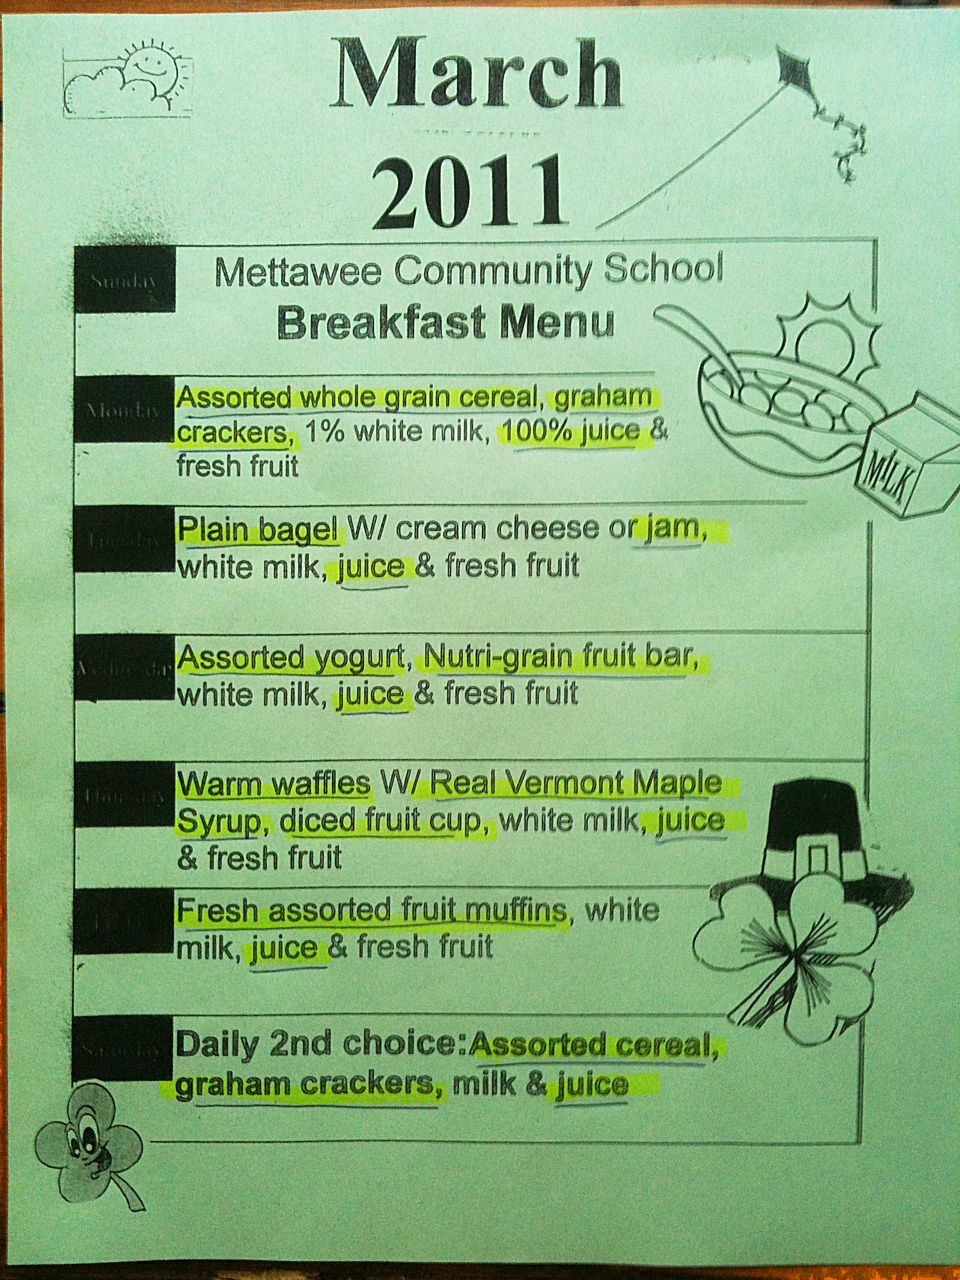 March
2011
Sunday
Mettawee Community School
Breakfast Menu
Monday
Assorted whole grain cereal, graham
crackers, 1% white milk, 100% juice &
fresh fruit
MILK
Tuesday
Plain bagel W/ cream cheese or jam,
white milk, juice & fresh fruit
Wednesday
Assorted yogurt, Nutri-grain fruit bar,
white milk, juice & fresh fruit
Thursday
Warm waffles W/ Real Vermont Maple
Syrup, diced fruit cup, white milk, juice
& fresh fruit
Fresh assorted fruit muffins, white
milk, juice & fresh fruit
Saturday
Daily 2nd choice:Assorted cereal,
graham crackers, milk & juice